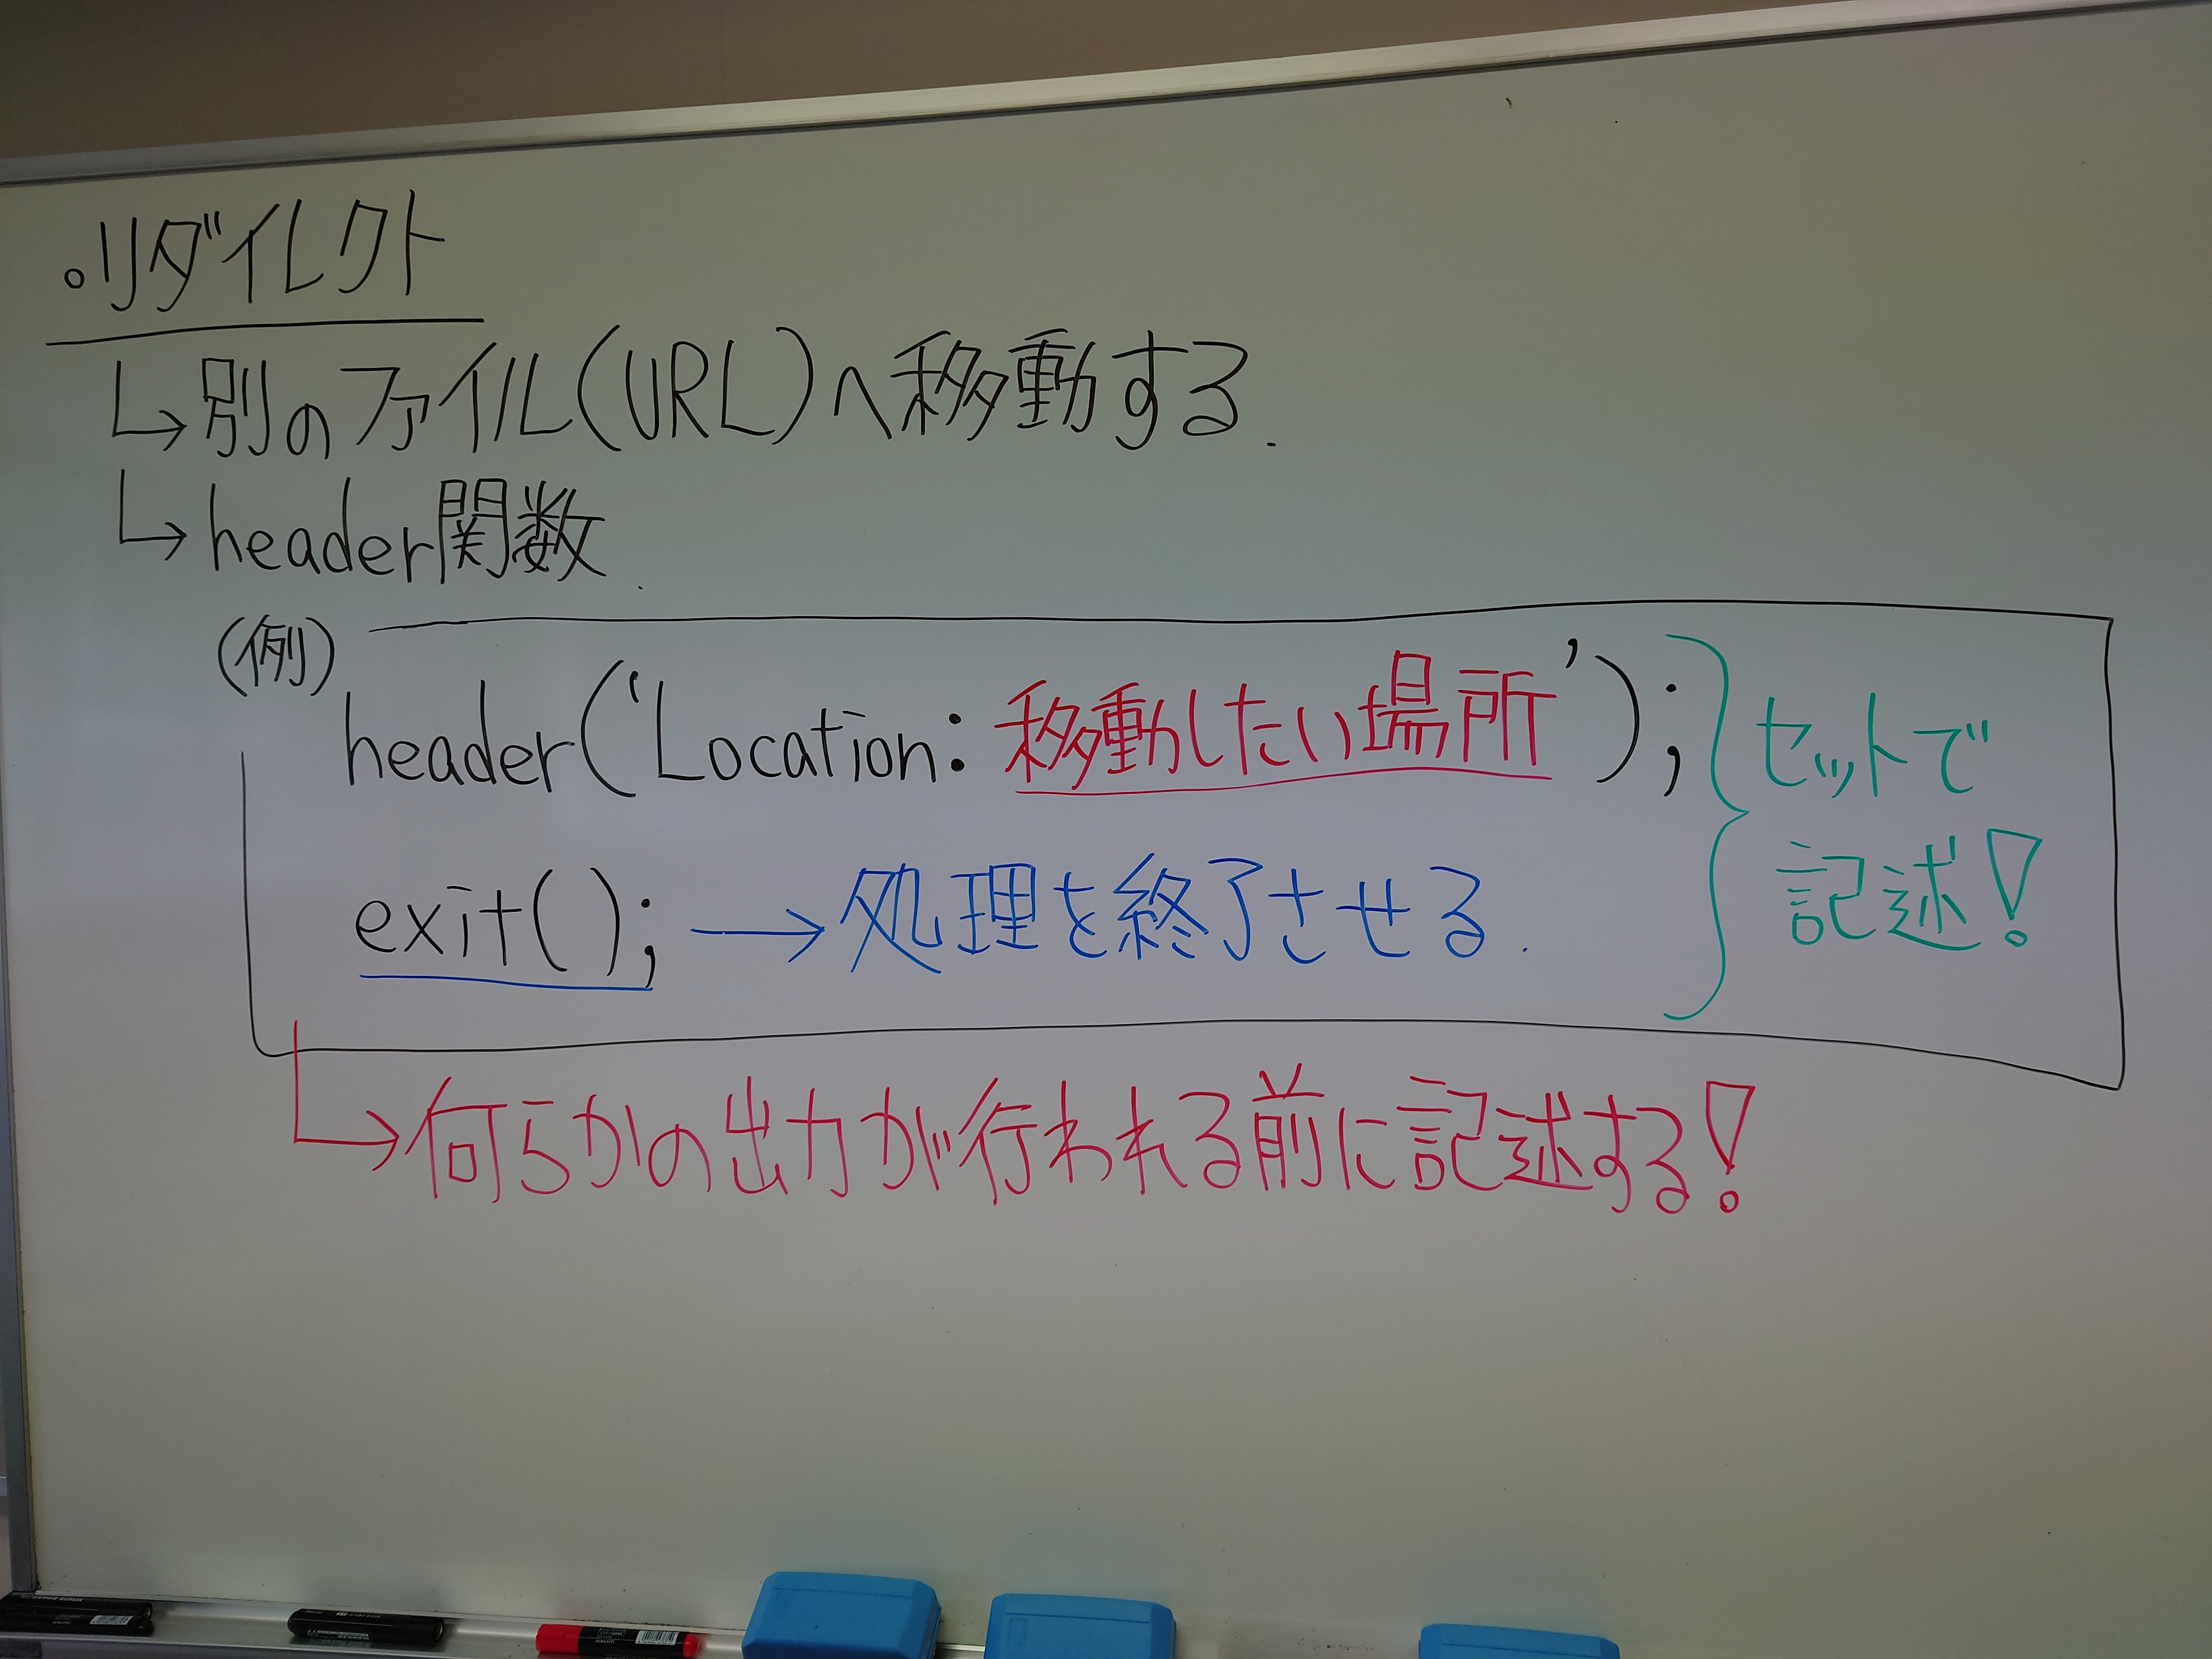 。リダイレクト
↳別のファイル(URL)へ移動する.
↳header関数.
(例)
header('Location: 移動したい場所');
セットで
exit(); →処理を終了させる.
記述!
↳何らかの出力が行われる前に記述する!